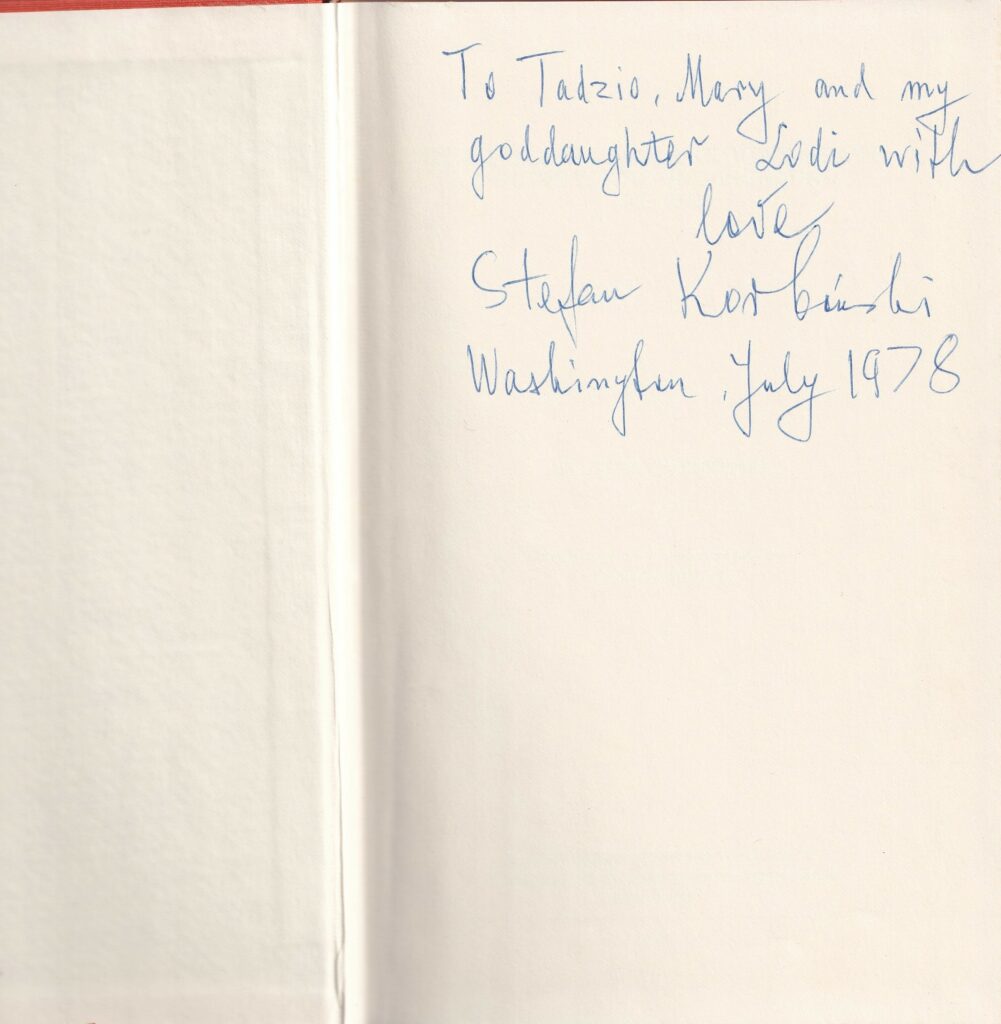 To Tadzio, Mary and my
goddaughter Lodi with
love
Stefan Korboński
Washington, July 1978